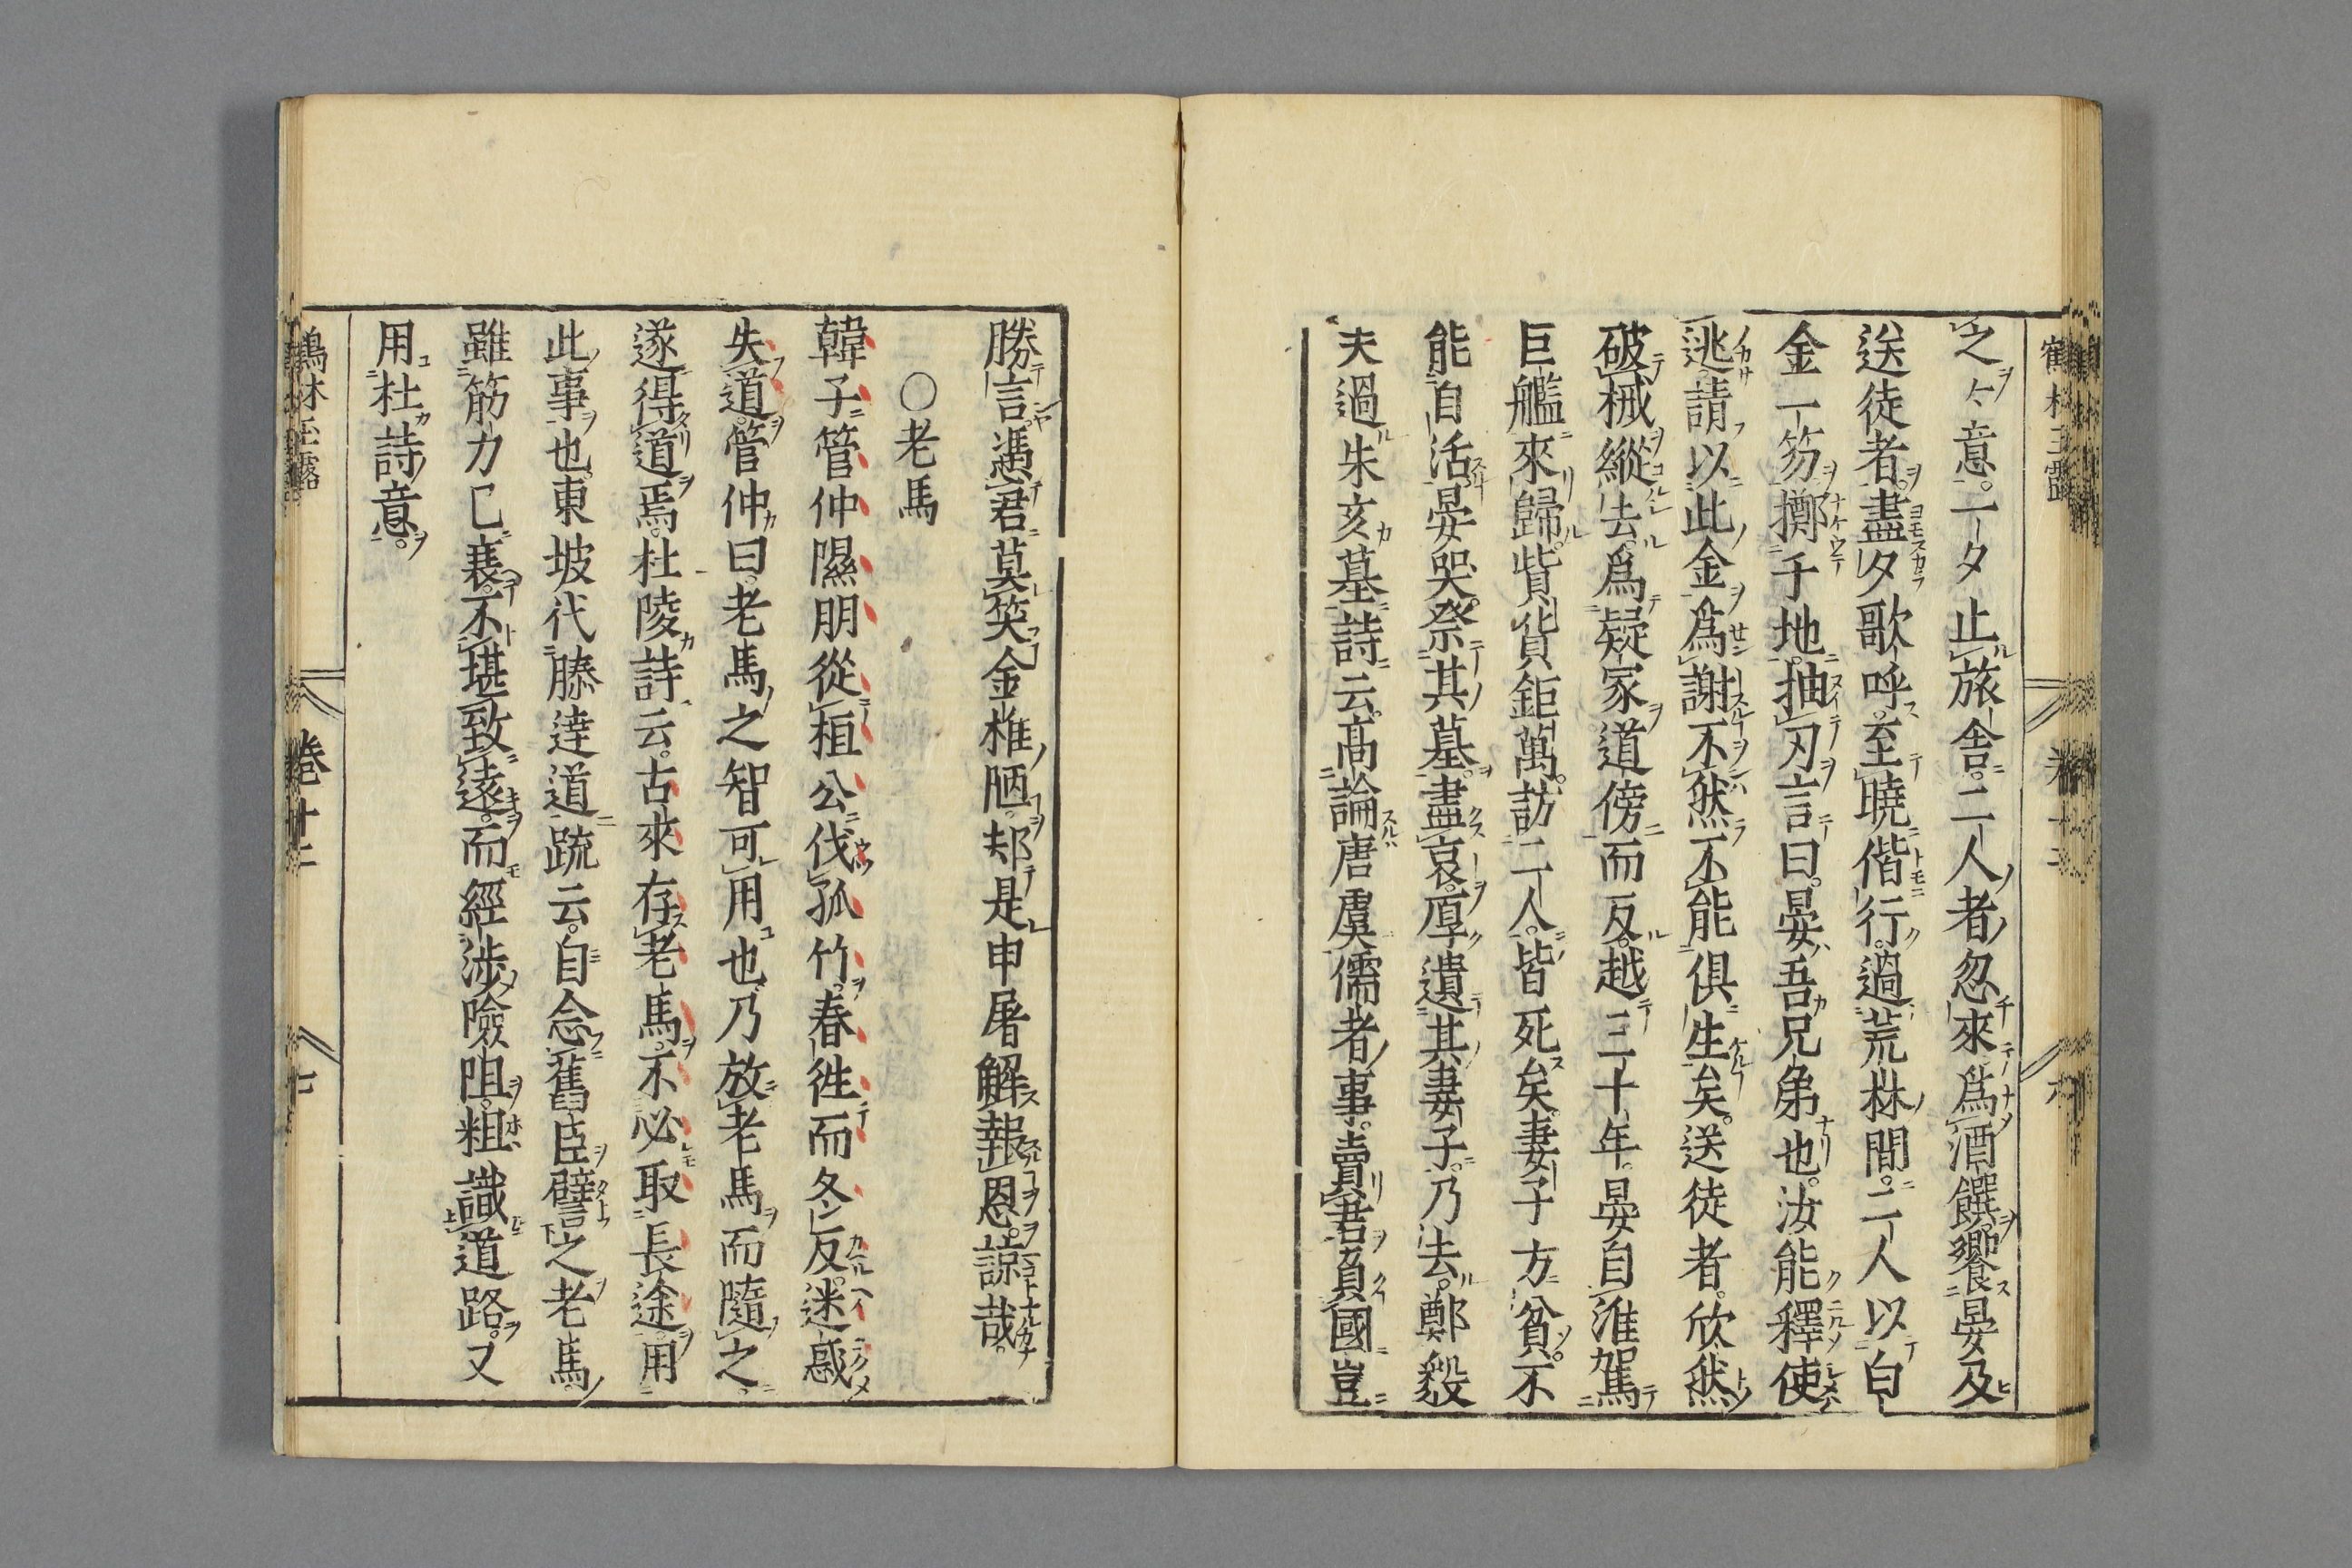 之意。一夕止旅舍。二人者忽來爲酒饌饗晏及
送徒者。盡夕歌呼。至曉偕行。過荒林間。二人以白
金一笏擲于地。抽刃言曰。晏吾兄弟也。汝能釋使
逃請以此金爲謝不然不能俱生矣。送徒者。欣然
破械縱去。爲疑冢道傍而反。越三十年。晏自淮駕
巨艦來歸。貲貨鉅萬。訪二人。皆死矣。妻子方貧。不
能自活晏哭祭其墓。盡哀。厚遺其妻子。乃去。鄭毅
夫過朱亥墓詩云。高論唐虞儒者事。賣君負國豈
勝言。憑君莫笑金椎陋。却是申屠解報恩。諒哉。
〇老馬
韓子管仲隰朋從桓公伐孤竹。春徃而冬反。迷惑
失道。管仲曰。老馬之智可用也。乃放老馬而隨之。
遂得道焉。杜陵詩云。古來存老馬。不必取長途。用
此事也。東坡代滕達道䟽云。自念舊臣譬之老馬。
雖筋力已衰。不堪致遠。而經涉險阻。粗識道路。又
用杜詩意。
卷十二